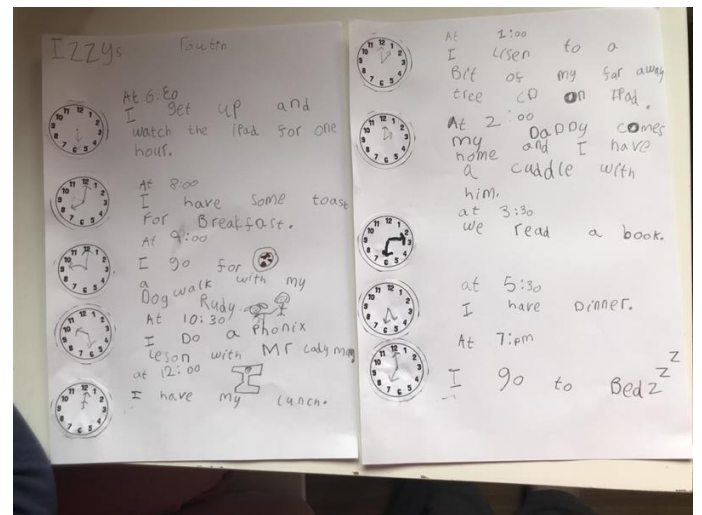 IZZYs Toutin
At 6:30
I get up and
watch the iPad for one
hour.
At 8:00
I have some toast
For Breakfast.
At 9:00
I go for
a walk with my
Dog Rudy
At 10:30
I Do a Phonix
leson with Mr cadyman
at 12:00
I have my Lunch.
At 1:00
I Lisen to a
Bit of my far away
tree CD on IPad.
At 2:00
my DaDDy comes
home and I have
a cuddle with
him.
at 3:30
we read a book.
at 5:30
I have Dinner.
At 7:pm
I go to Bed z z z